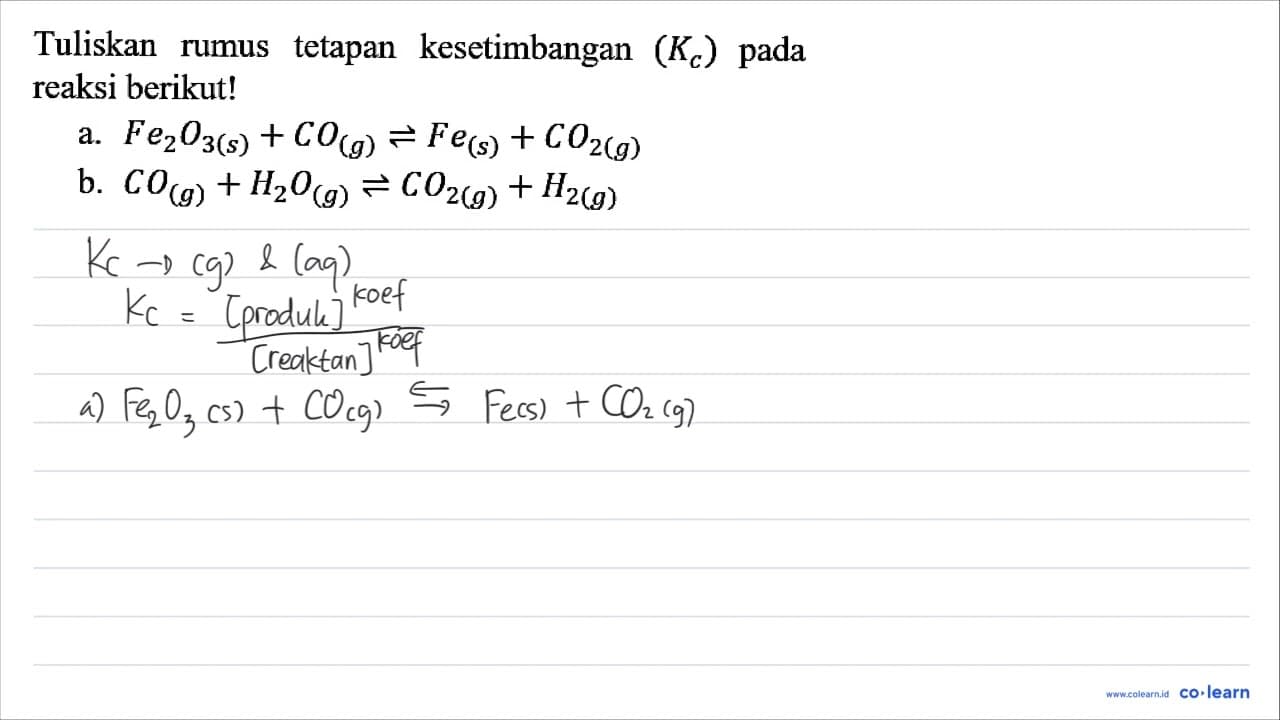 Tuliskan rumus tetapan kesetimbangan (K_c) pada
reaksi berikut!
a. Fe₂O₃(s) + CO(g) ⇌ Fe(s) + CO₂(g)
b. CO(g) + H₂O(g) ⇌ CO₂(g) + H₂(g)
Kc → (g) & (aq)
Kc = [produk]^koef
[reaktan]^koef
a) Fe₂O₃(s) + CO(g) ⇆ Fe(s) + CO₂(g)
www.colearn.id co·learn